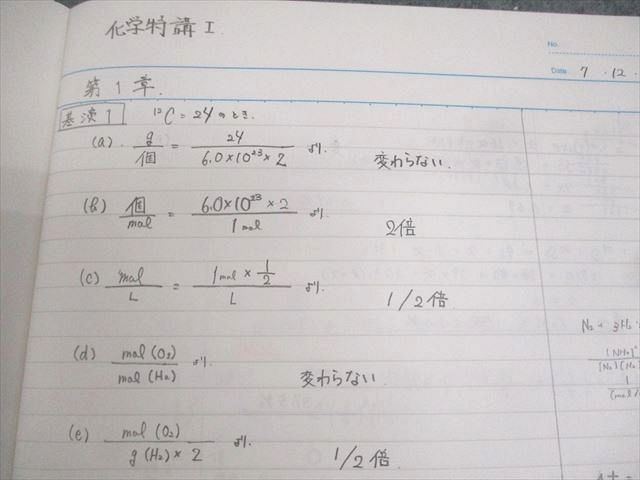 化学特講 I
No.
Date 7 ・12・
第1章.
基演1 ¹²C = 24 のとき.
(a) g/個 = 24/(6.0×10²³×2) より. 変わらない.
(b) 個/mol = (6.0×10²³×2)/(1mol) より. 2倍
(c) mol/L = (1mol×1/2)/L より. 1/2倍
(d) mol(O₂)/mol(H₂) より. 変わらない
(e) mol(O₂)/(g(H₂)×2) より. 1/2倍.
N₂ + 3H₂